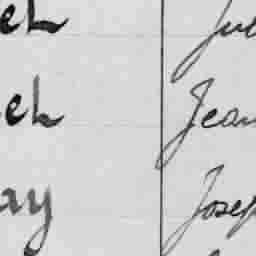 el Jul
el Jean
ay Josep